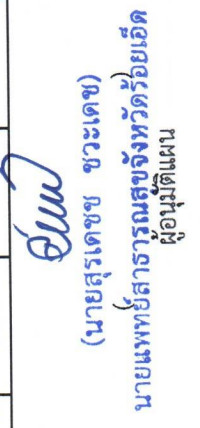 (นายสุรเดชช ชวะเดช)
นายแพทย์สาธารณสุขจังหวัดร้อยเอ็ด
ผู้อนุมัติแผน